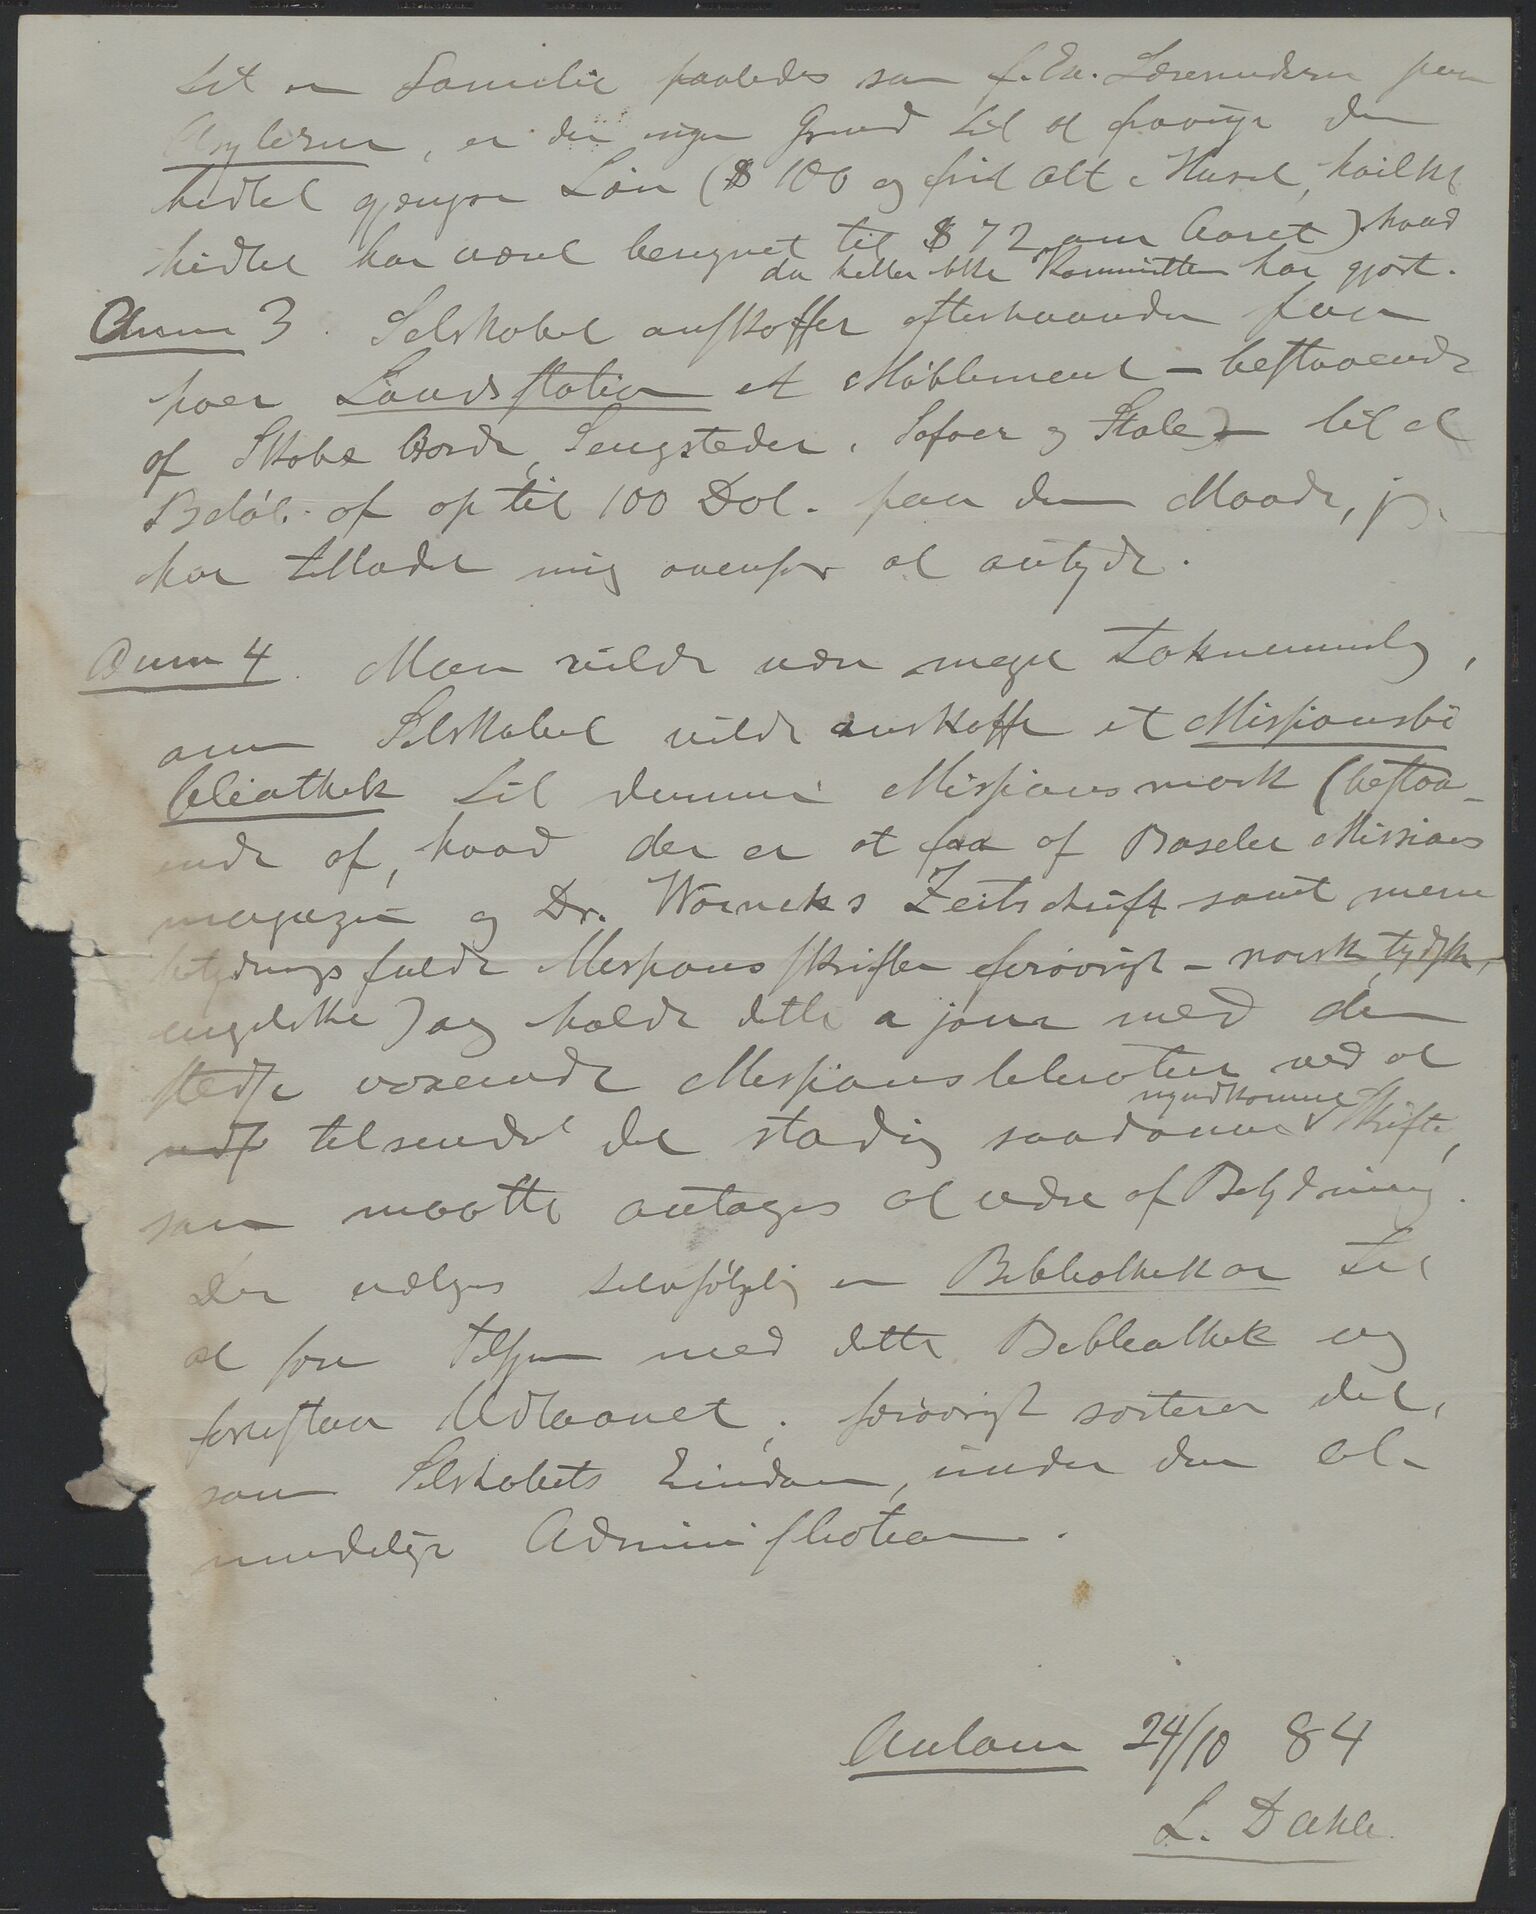 til en Familie saaledes som f. Ex. Lærerinderne paa
Asylerne, er der ingen Grund til at fravige den
hidtil gjængse Løn ($ 100 og frit alt i Huset, hvilket
hidtil har været beregnet til $ 72 om Aaret) hvad
da heller ikke Kommitteen har gjort.
Anm 3. Selskabet anskaffer efterhaanden paa
hver Landstation et Møblement – bestaaende
af Skabe Borde, Sengsteder, Sofaer og Stole – til et
Beløb af op til 100 Dol. paa den Maade, jeg
har tilladt mig ovenfor at antyde.
Anm 4. Man vilde være meget taknemmelig,
om Selskabet vilde anskaffe et Missionsbi
bliothek til denne Missionsmark (bestaa-
ende af, hvad der er at faa af Baseler Missions
magazin og Dr. Warneks Zeitschrift samt mere
betydningsfulde Missionsskrifter forøvrigt – norske, tydske,
engelske) og holde dette a jour med den
stedse voxende Missionsliteratur ved at
tilsende det stadig saadanne nyudkomne Skrifter,
som maatte antages at være af Betydning.
Der vælges selvfølgelig en Bibliothekar til
at føre Tilsyn med dette Bibliothek og
forestaa Udlaanet; forøvrigt sorterer det,
som Selskabets Eiendom, under den al-
mindelige Administration.
Aulam 24/10 84
L. Dahle